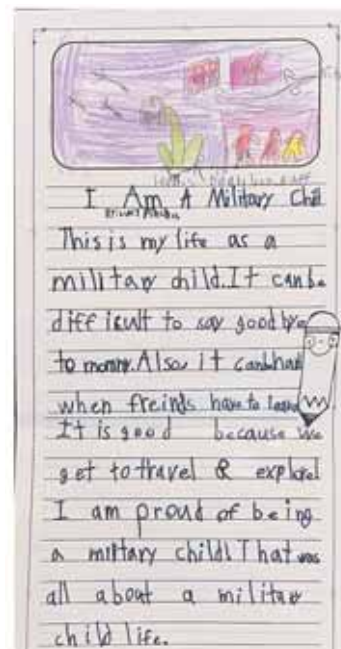 I Am A Military Chil
This is my life as a
military child. It can be
difficult to say goodbye
to mommy. Also it can be har
when freinds have to leave
It is good because we
get to travel & explore!
I am proud of being
a military child! That was
all about a military
child life.